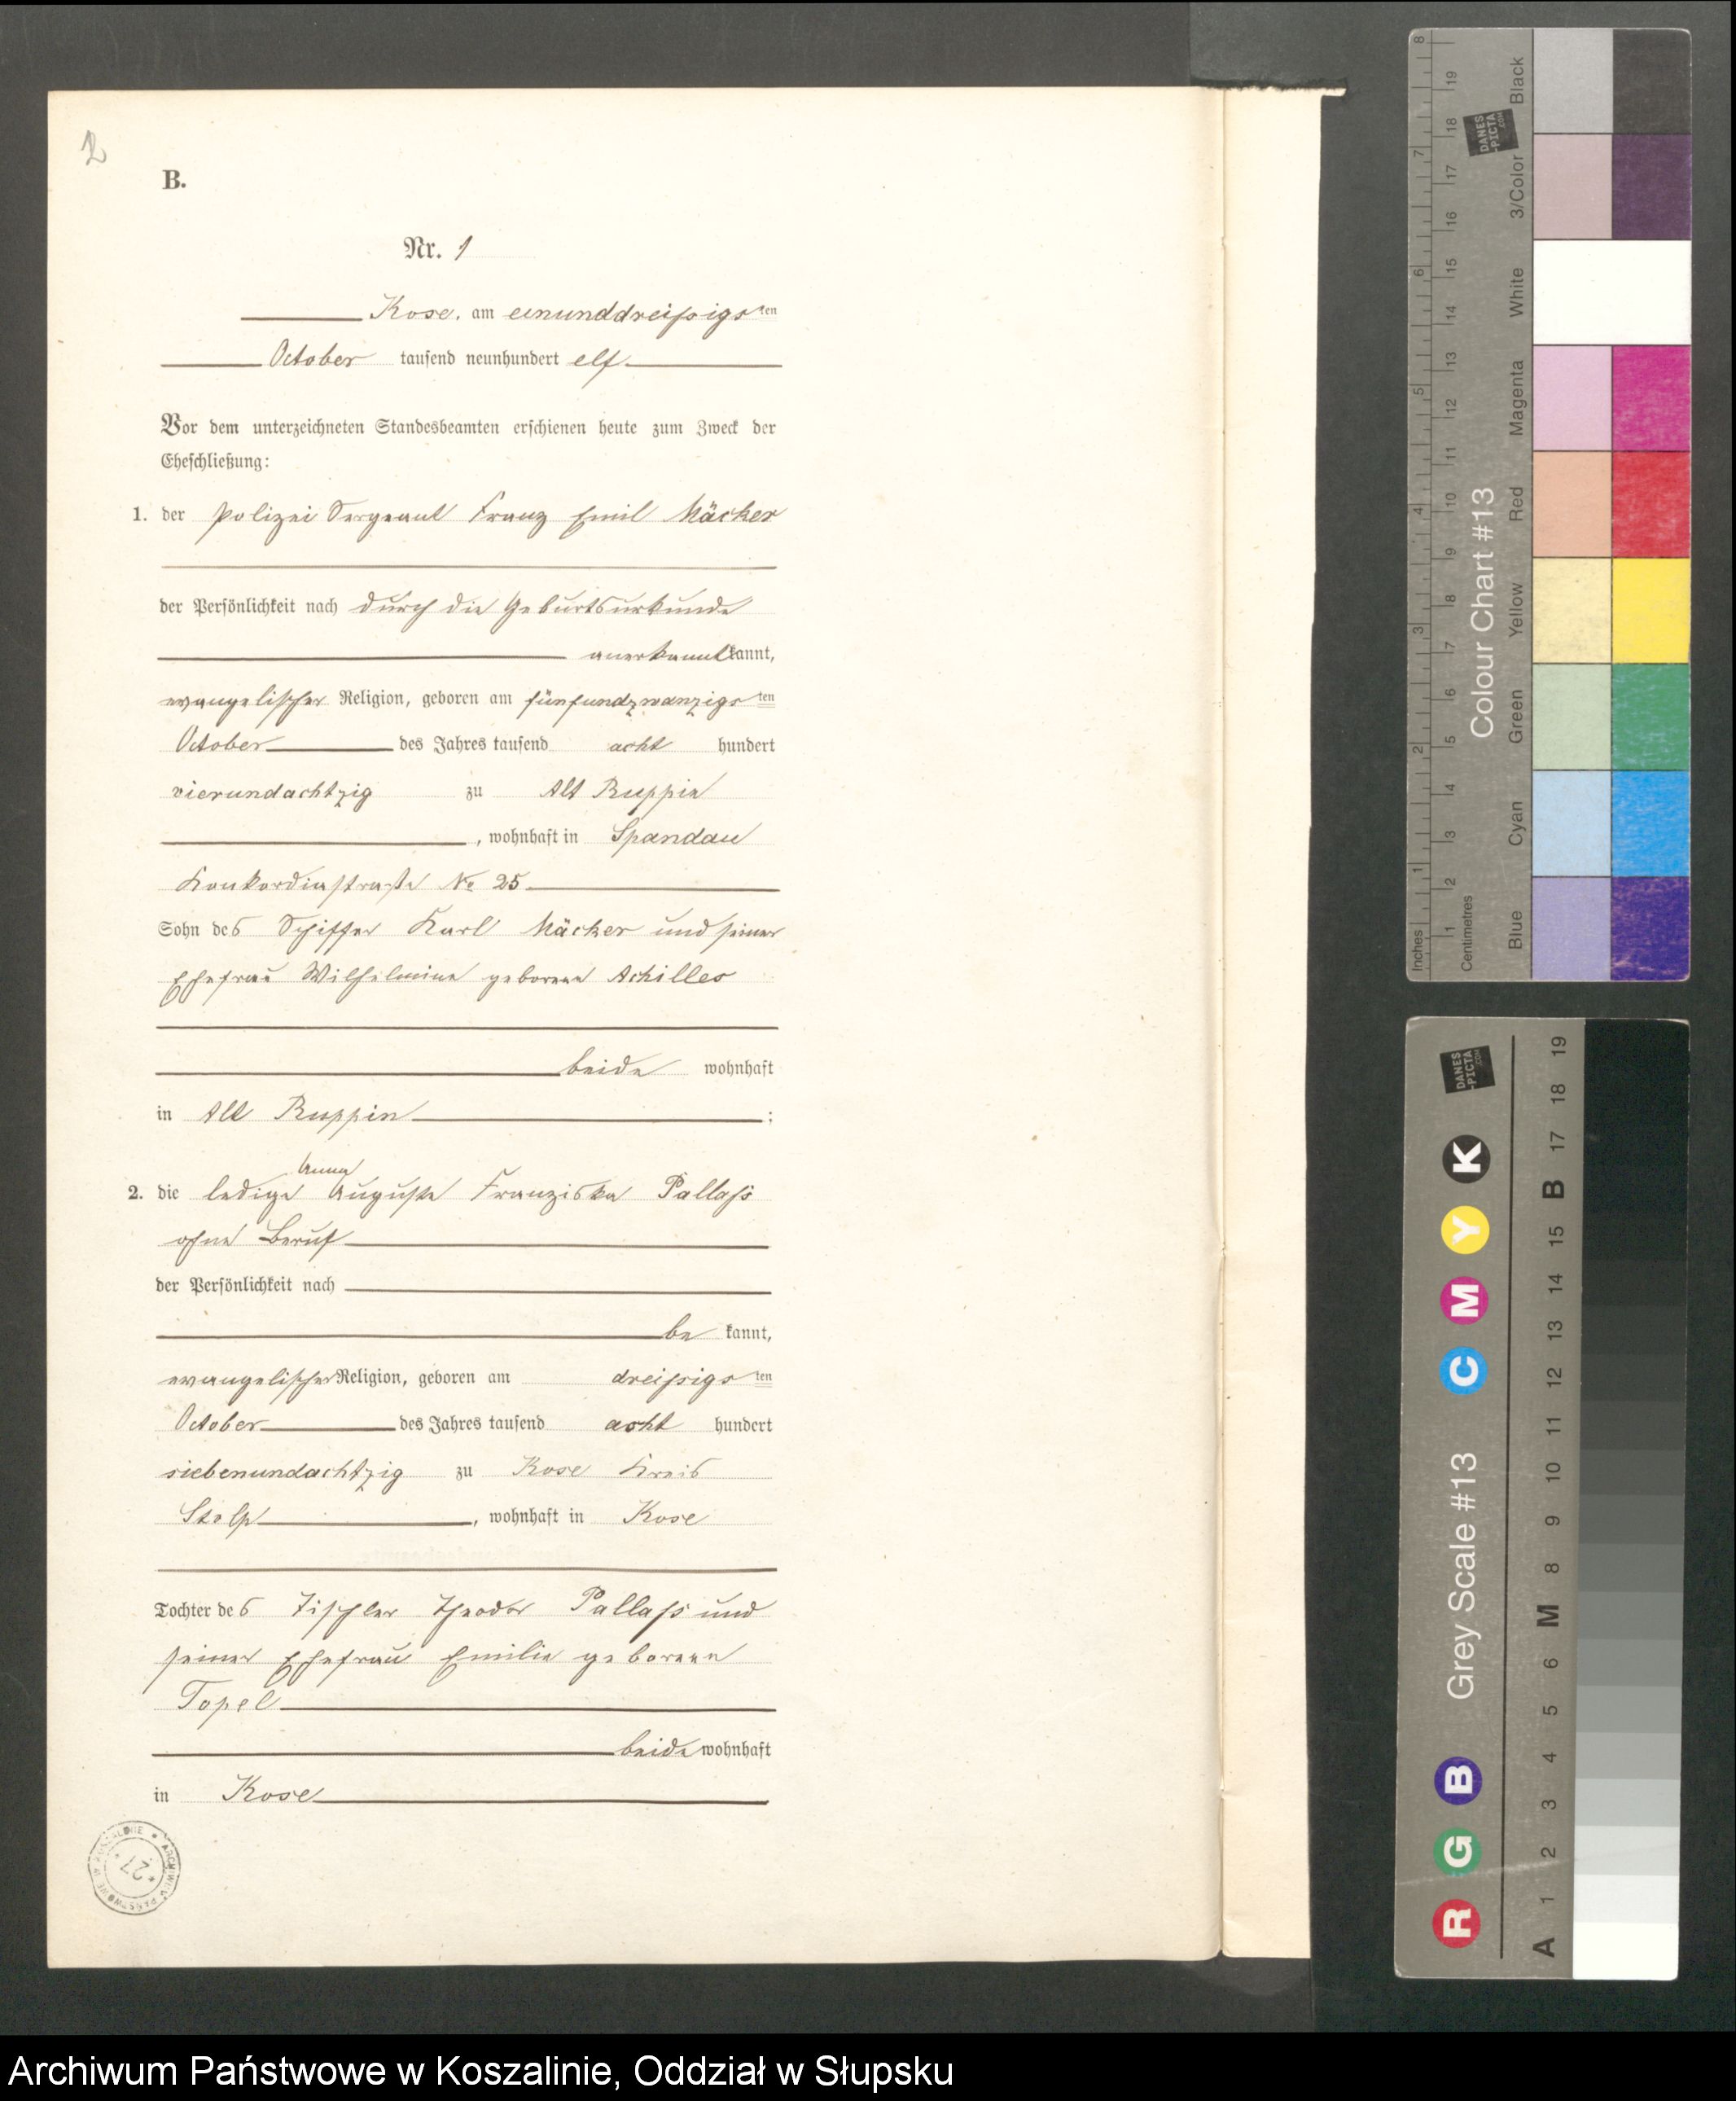 2
B.
Nr. 1
Kose, am einunddreißigsten
October tausend neunhundert elf
Vor dem unterzeichneten Standesbeamten erschienen heute zum Zweck der
Eheschließung:
1. der Polizei Sergeant Franz Emil Mäcker
der Persönlichkeit nach durch die Geburtsurkunde
anerkannt kannt,
evangelischer Religion, geboren am fünfundzwanzigsten
October des Jahres tausend acht hundert
vierundachtzig zu Alt Ruppin
, wohnhaft in Spandau
Konkordiastraße No 25
Sohn des Schiffer Karl Mäcker und seiner
Ehefrau Wilhelmine geborene Achilles
beide wohnhaft
in Alt Ruppin ;
Anna
2. die ledige Auguste Franziska Pallaß
ohne Beruf
der Persönlichkeit nach
be kannt,
evangelischer Religion, geboren am dreißigsten
October des Jahres tausend acht hundert
siebenundachtzig zu Kose Kreis
Stolp , wohnhaft in Kose
Tochter des Tischler Theodor Pallaß und
seiner Ehefrau Emilie geborene
Topel
beide wohnhaft
in Kose
ARCHIWUM PAŃSTWOWE W KOSZALINIE
27
Inches 1 2 3 4 5 6 7 8
Centimetres 1 2 3 4 5 6 7 8 9 10 11 12 13 14 15 16 17 18 19
Colour Chart #13
DANES
-PICTA
.COM
Blue Cyan Green Yellow Red Magenta White 3/Color Black
Grey Scale #13
DANES
-PICTA
.COM
R G B C M Y K
A 1 2 3 4 5 6 M 8 9 10 11 12 13 14 15 B 17 18 19
Archiwum Państwowe w Koszalinie, Oddział w Słupsku